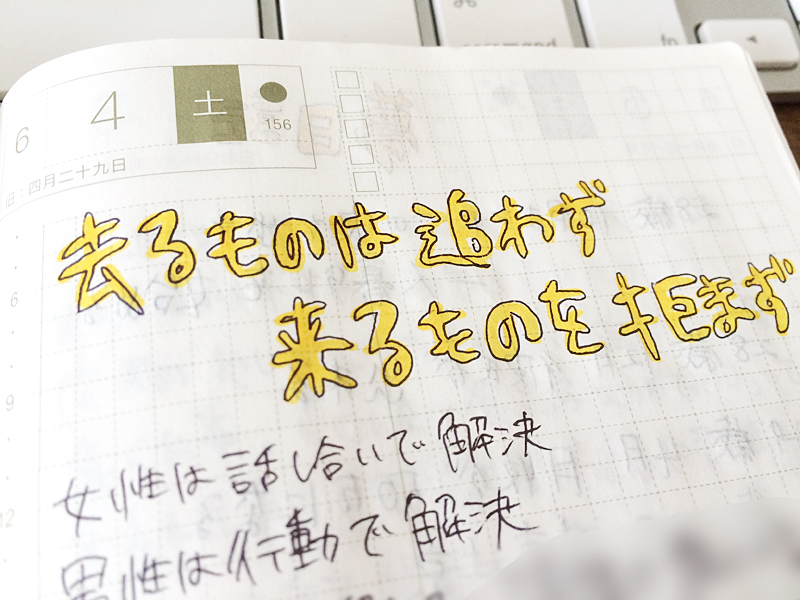 command
fn
6 4 土
156
旧:四月二十九日
去るものは追わず
来るものを拒まず
6
9
12
女性は話し合いで解決
男性は行動で解決